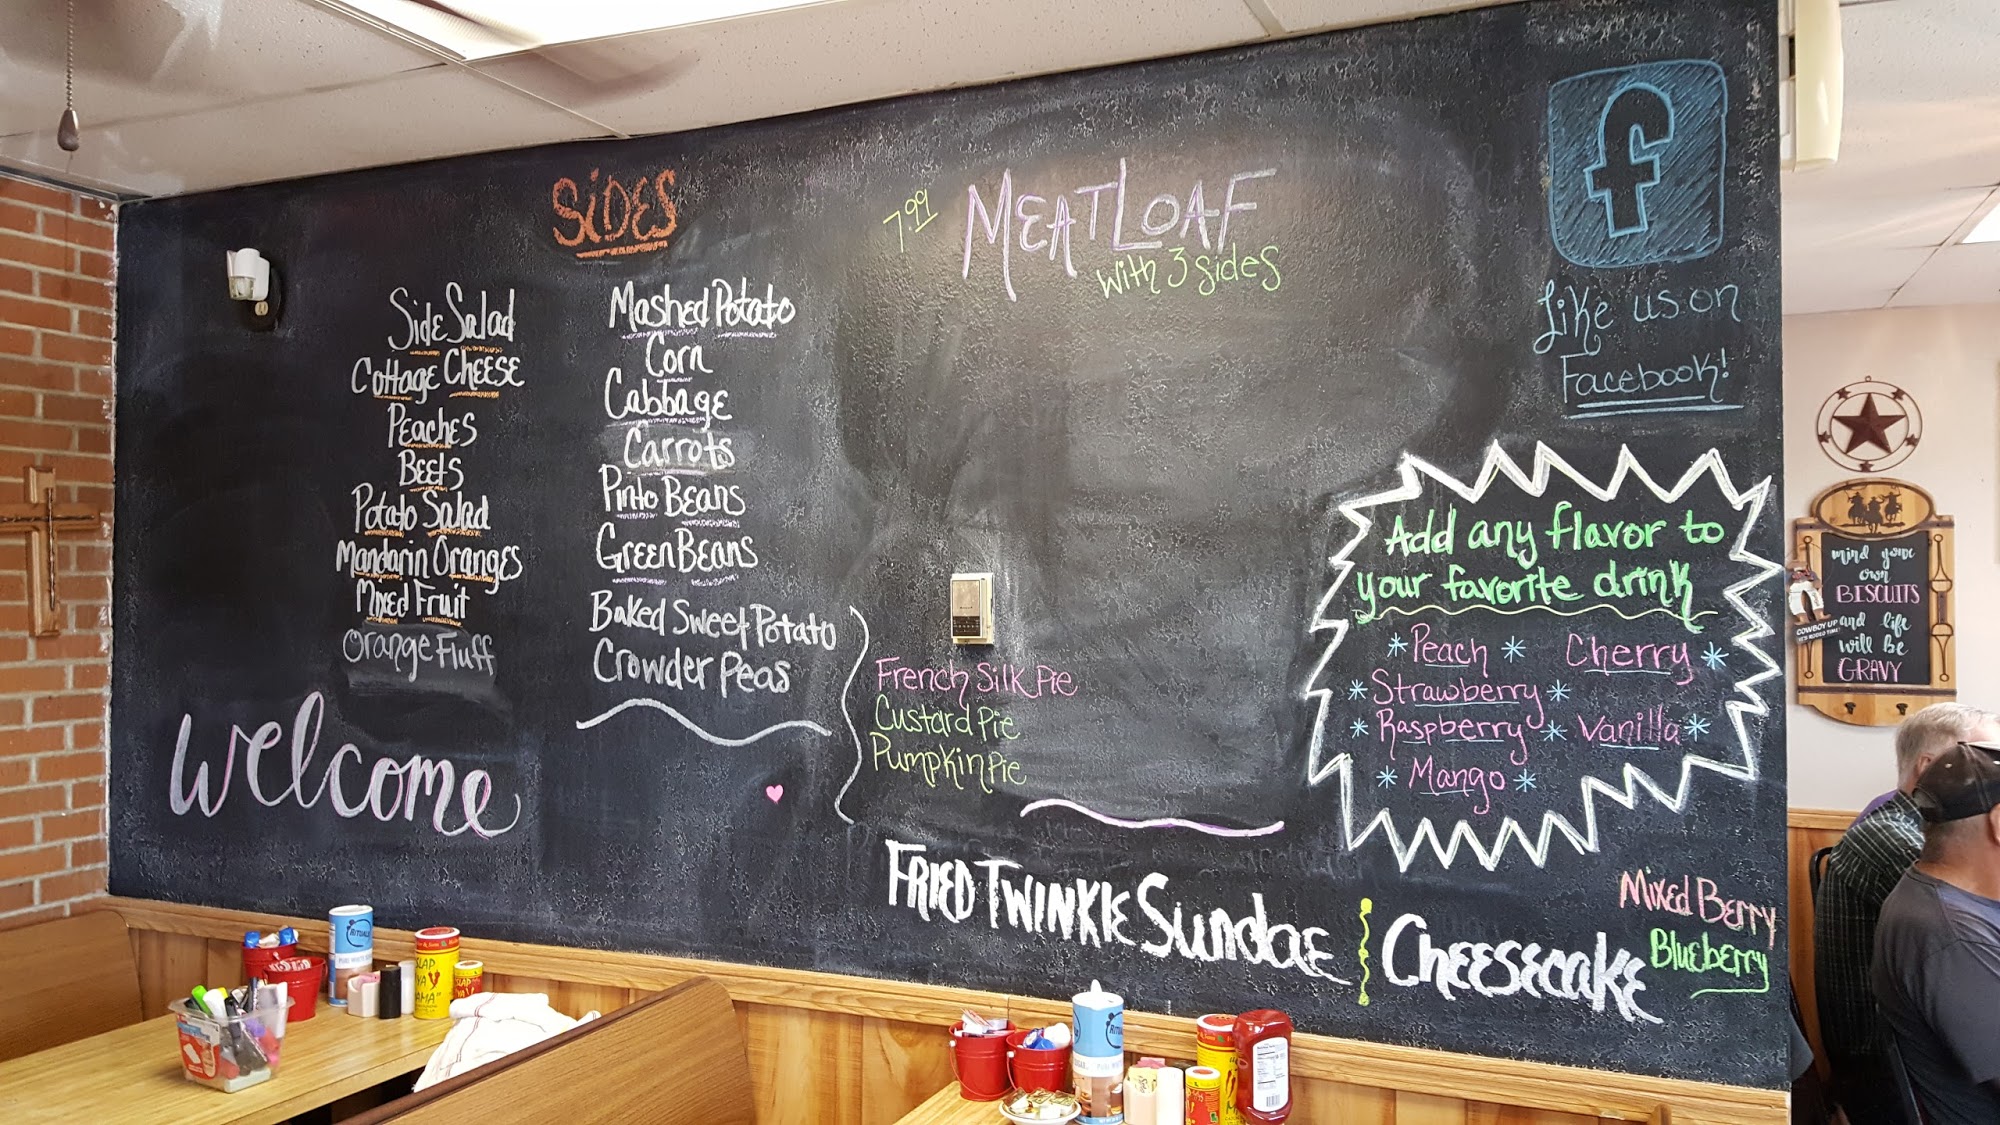 SiDES
Side Salad
Cottage Cheese
Peaches
Beets
Potato Salad
Mandarin Oranges
Mixed Fruit
Orange Fluff
Mashed Potato
Corn
Cabbage
Carrots
Pinto Beans
Green Beans
Baked Sweet Potato
Crowder Peas
Welcome
7.99 MEATLOAF
with 3 sides
French Silk Pie
Custard Pie
Pumpkin Pie
f
Like us on
Facebook!
Add any flavor to
your favorite drink
*Peach * Cherry *
*Strawberry*
*Raspberry* Vanilla*
* Mango *
FRIED TWINKIE Sundae | Cheesecake
Mixed Berry
Blueberry
mind your
own
BISCUITS
and life
will be
GRAVY
COWBOY UP
RITUALS
SLAP
YA
MAMA